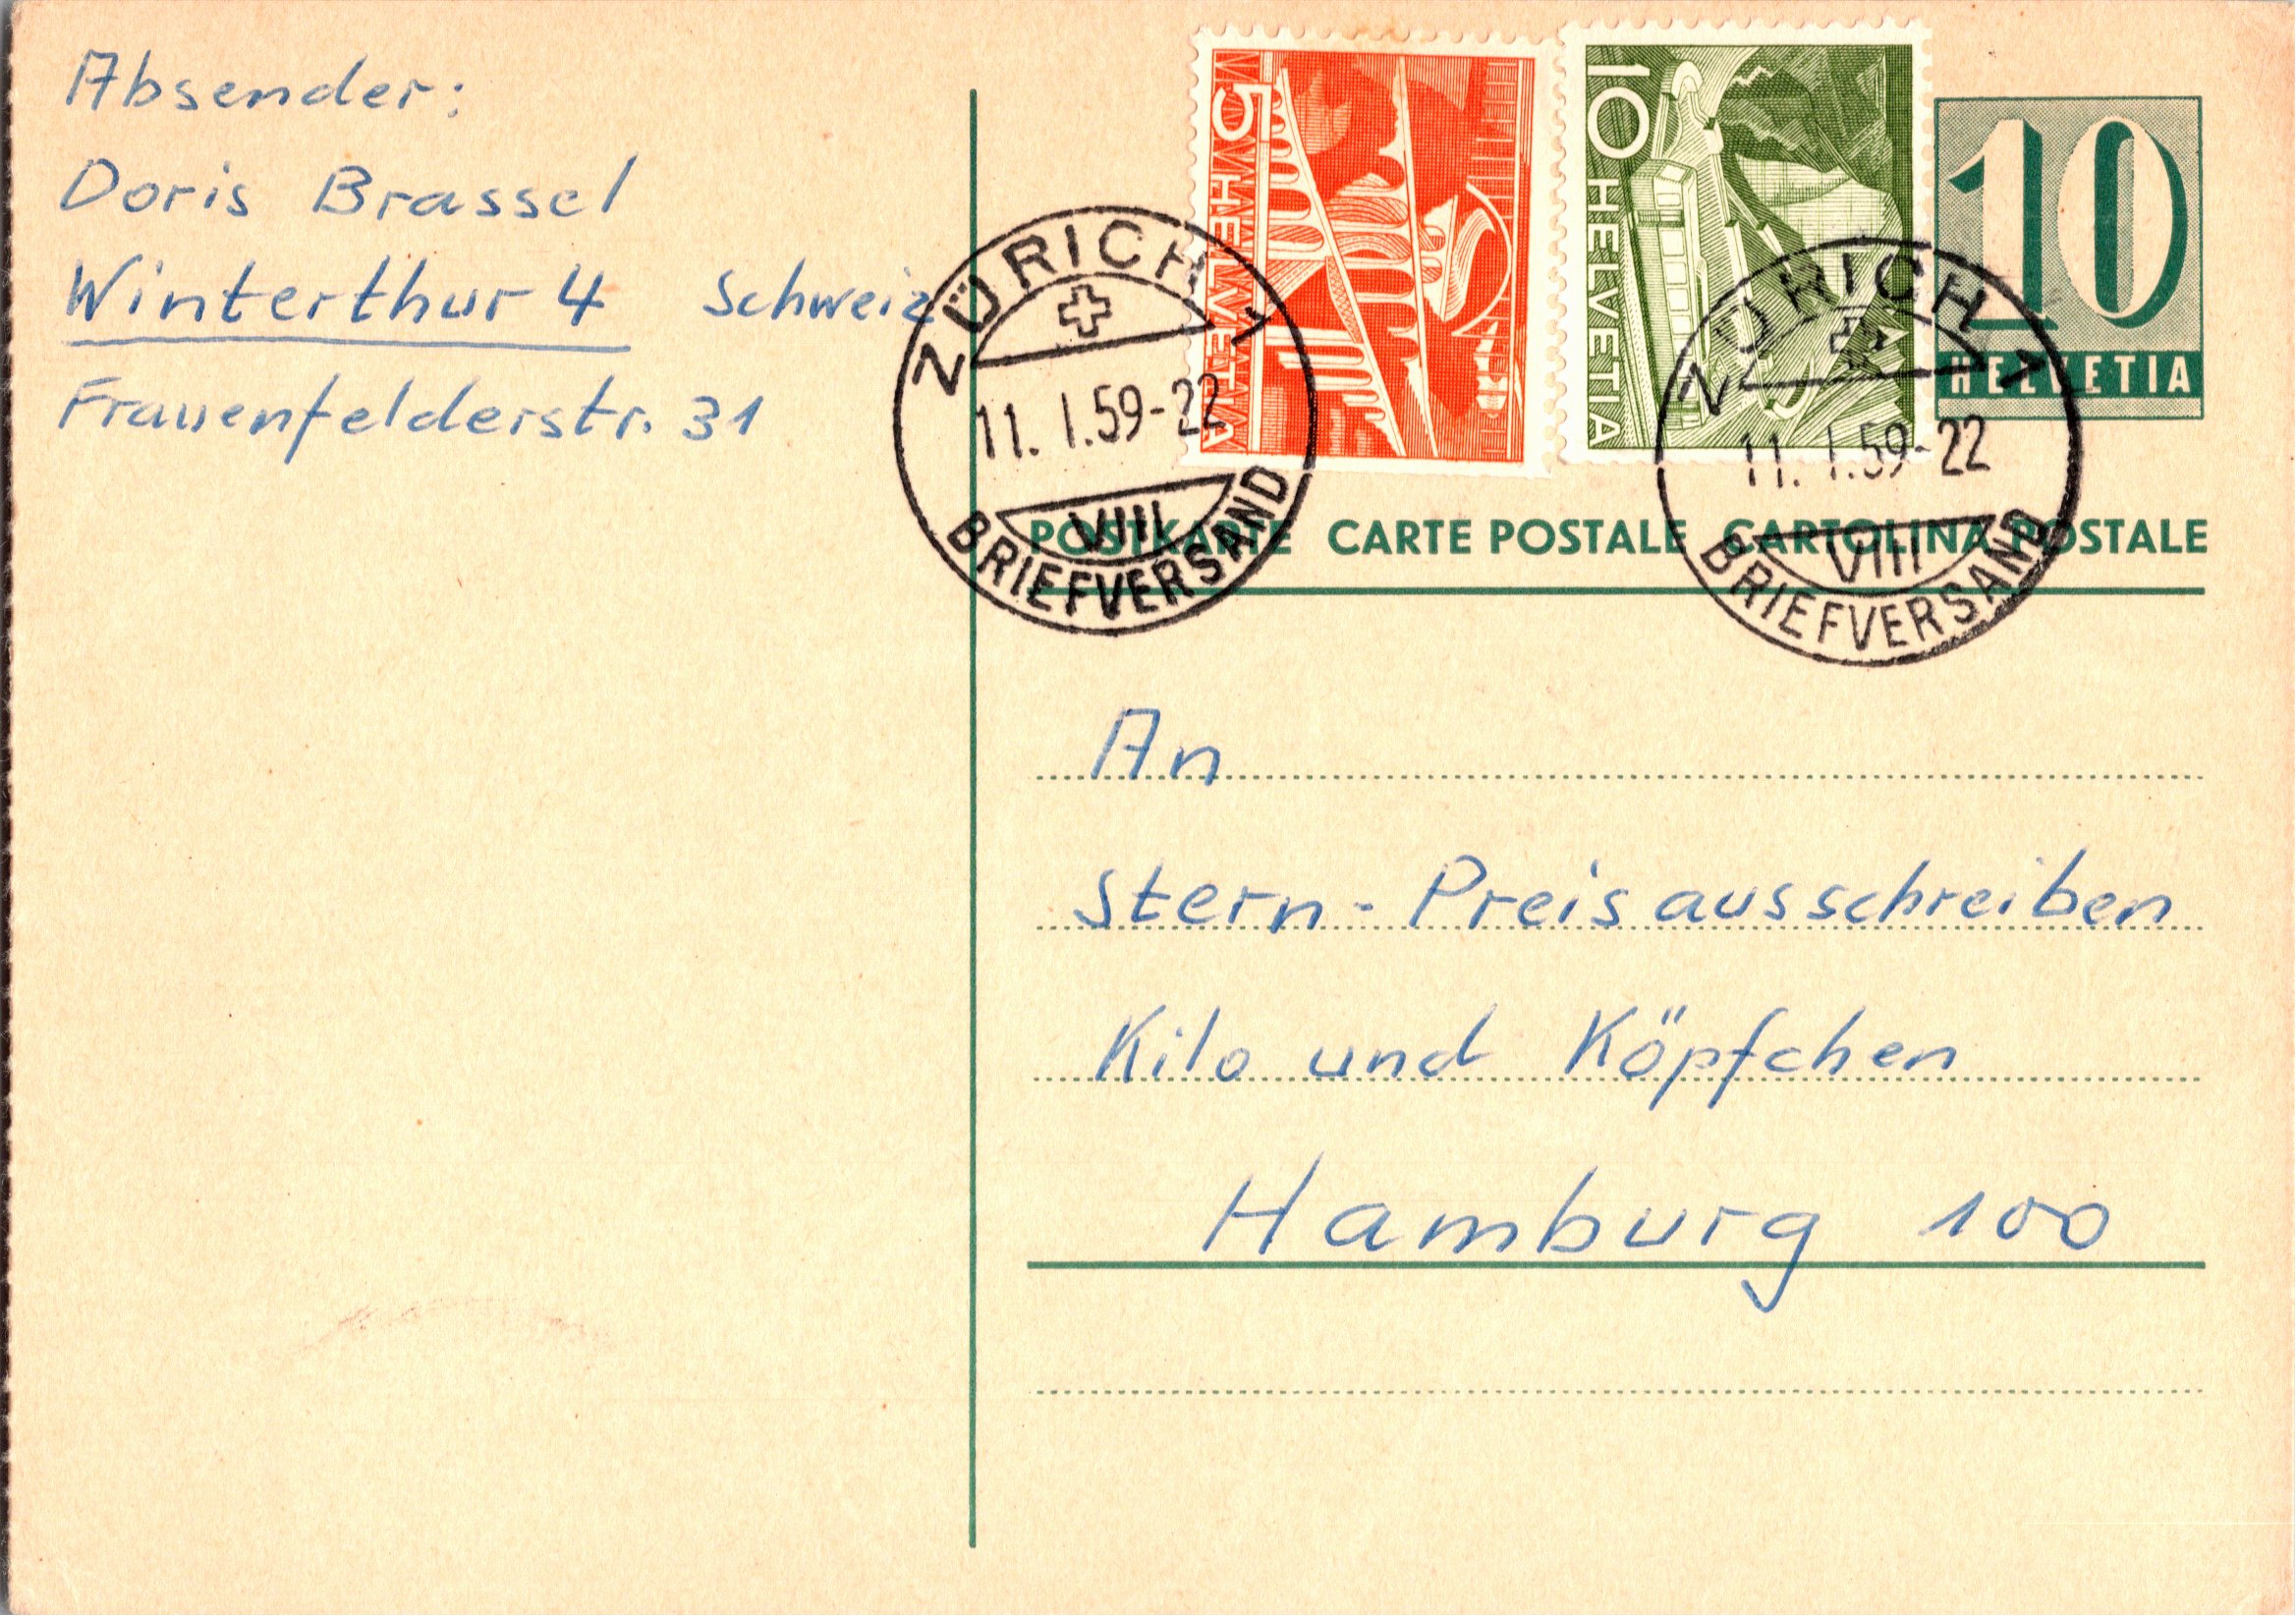 Absender:
Doris Brassel
Winterthur 4 Schweiz
Frauenfelderstr. 31
5 HELVETIA
10 HELVETIA
10
HELVETIA
ZÜRICH 1
11. I.59-22
VIII
BRIEFVERSAND
ZÜRICH 1
11. I.59-22
VIII
BRIEFVERSAND
POSTKARTE CARTE POSTALE CARTOLINA POSTALE
An
Stern-Preisausschreiben
Kilo und Köpfchen
Hamburg 100